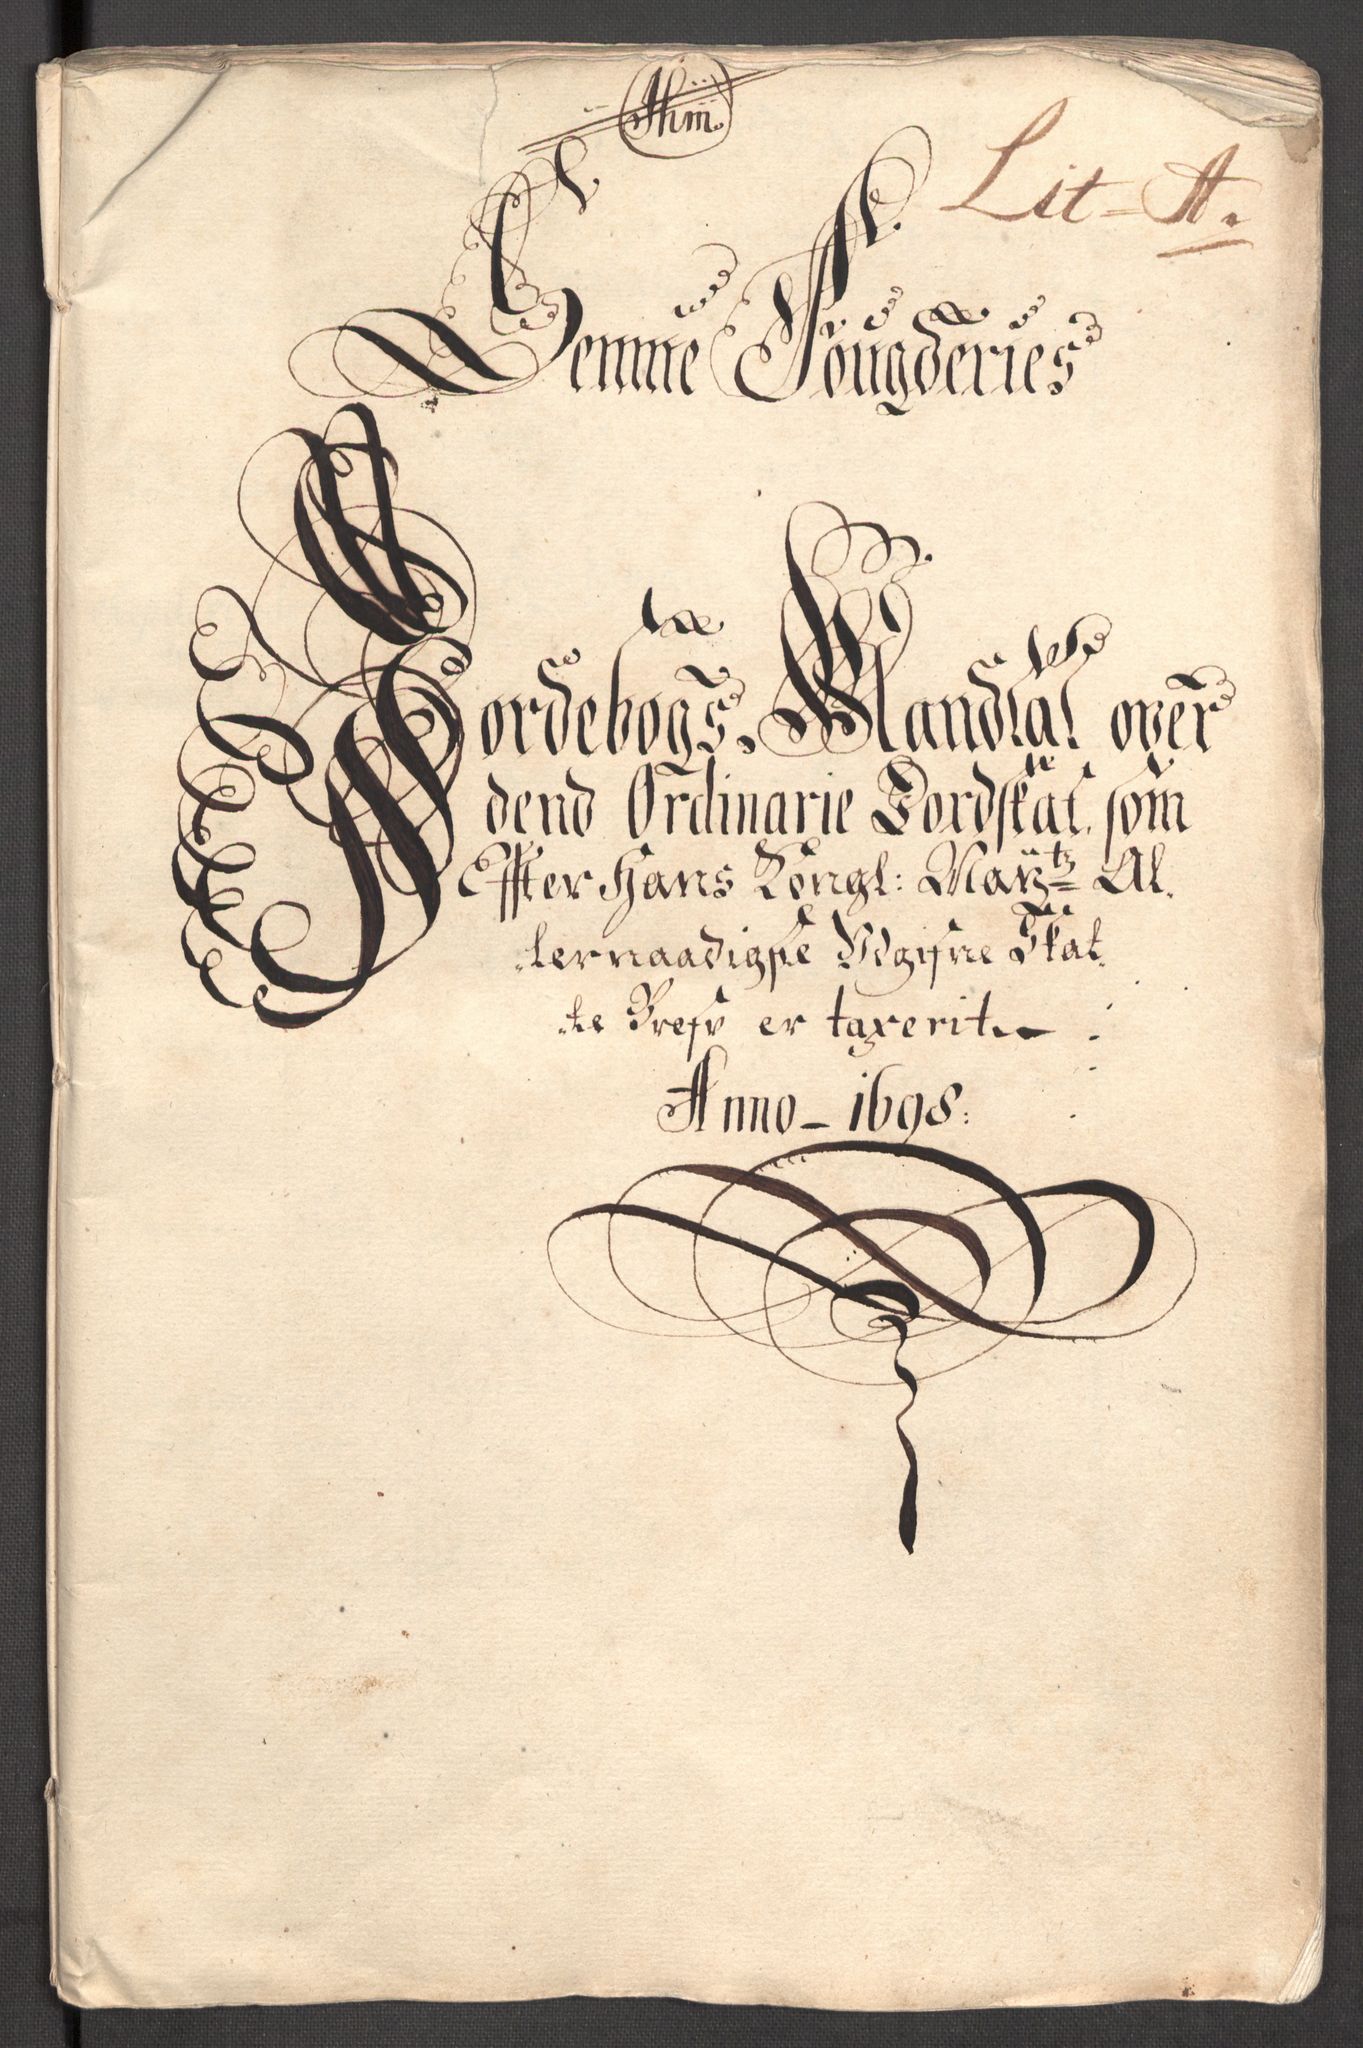 Lit- A.
Senniens Fougderies
Jordebogs Mandtal over
dend Ordinarie Jordskat, som
Effter Hans Kongl: Mayᵗᶻ Al-
lernaadigste Udgifne Skat-
te Brefv er taxerit
Anno - 1698: